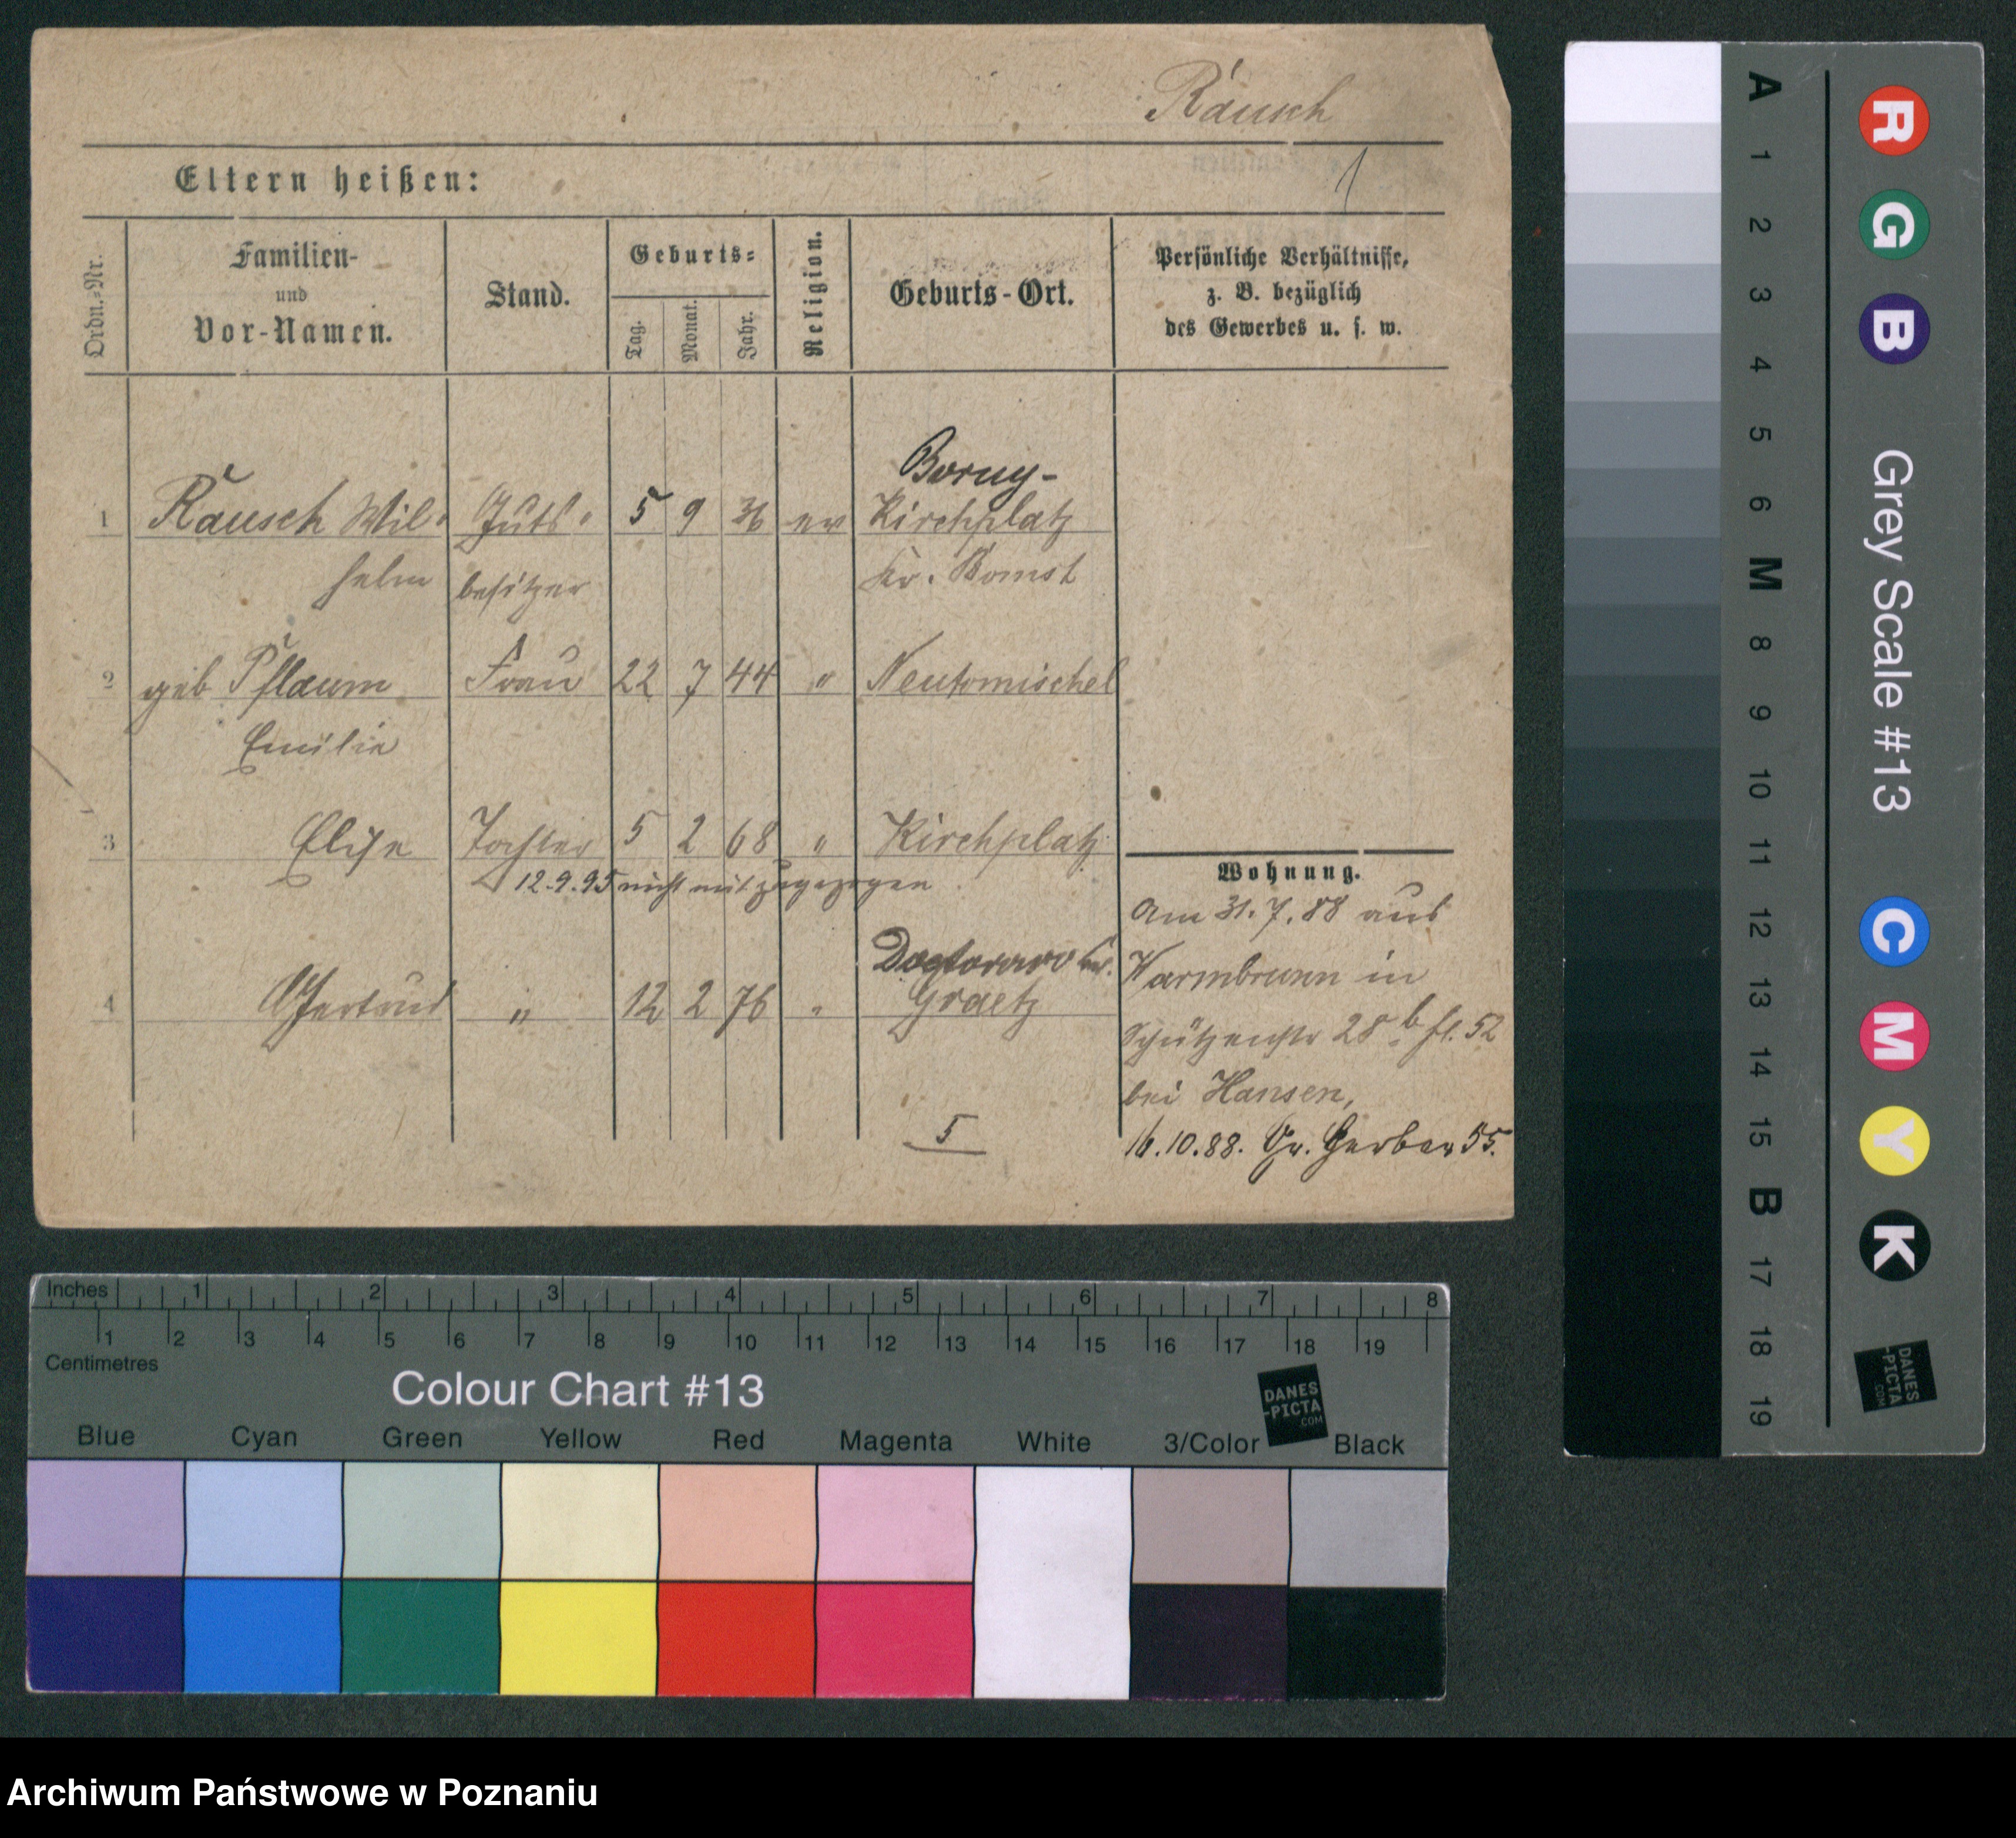 Rausch
1
Eltern heißen:
Ordn.-Nr.
Familien-
und
Vor-Namen.
Stand.
Geburts-
Tag.
Monat.
Jahr.
Religion.
Geburts-Ort.
Persönliche Verhältnisse,
z. B. bezüglich
des Gewerbes u. s. w.
Boruy-
1 Rausch Wil- Guts- 5 9 36 ev Kirchplatz
helm besitzer Kr. Bomst
2 geb Pflaum Frau 22 7 44 " Neutomischel
Emilie
3 Elise Tochter 5 2 68 " Kirchplatz
12.9.95 nicht mit zugezogen
Doctorowo
4 Gertrud " 12 2 76 " Graetz
5
Wohnung.
Am 31.7.88 aus
Warmbrunn in
Schützenstr 28b fl. 52
bei Hansen,
16.10.88. Gr. Gerber 55.
Inches 1 2 3 4 5 6 7 8
1 2 3 4 5 6 7 8 9 10 11 12 13 14 15 16 17 18 19
Centimetres
Colour Chart #13
DANES
-PICTA
.COM
Blue Cyan Green Yellow Red Magenta White 3/Color Black
A 1 2 3 4 5 6 M 8 9 10 11 12 13 14 15 B 17 18 19
R G B Grey Scale #13 C M Y K
DANES
-PICTA
.COM
Archiwum Państwowe w Poznaniu